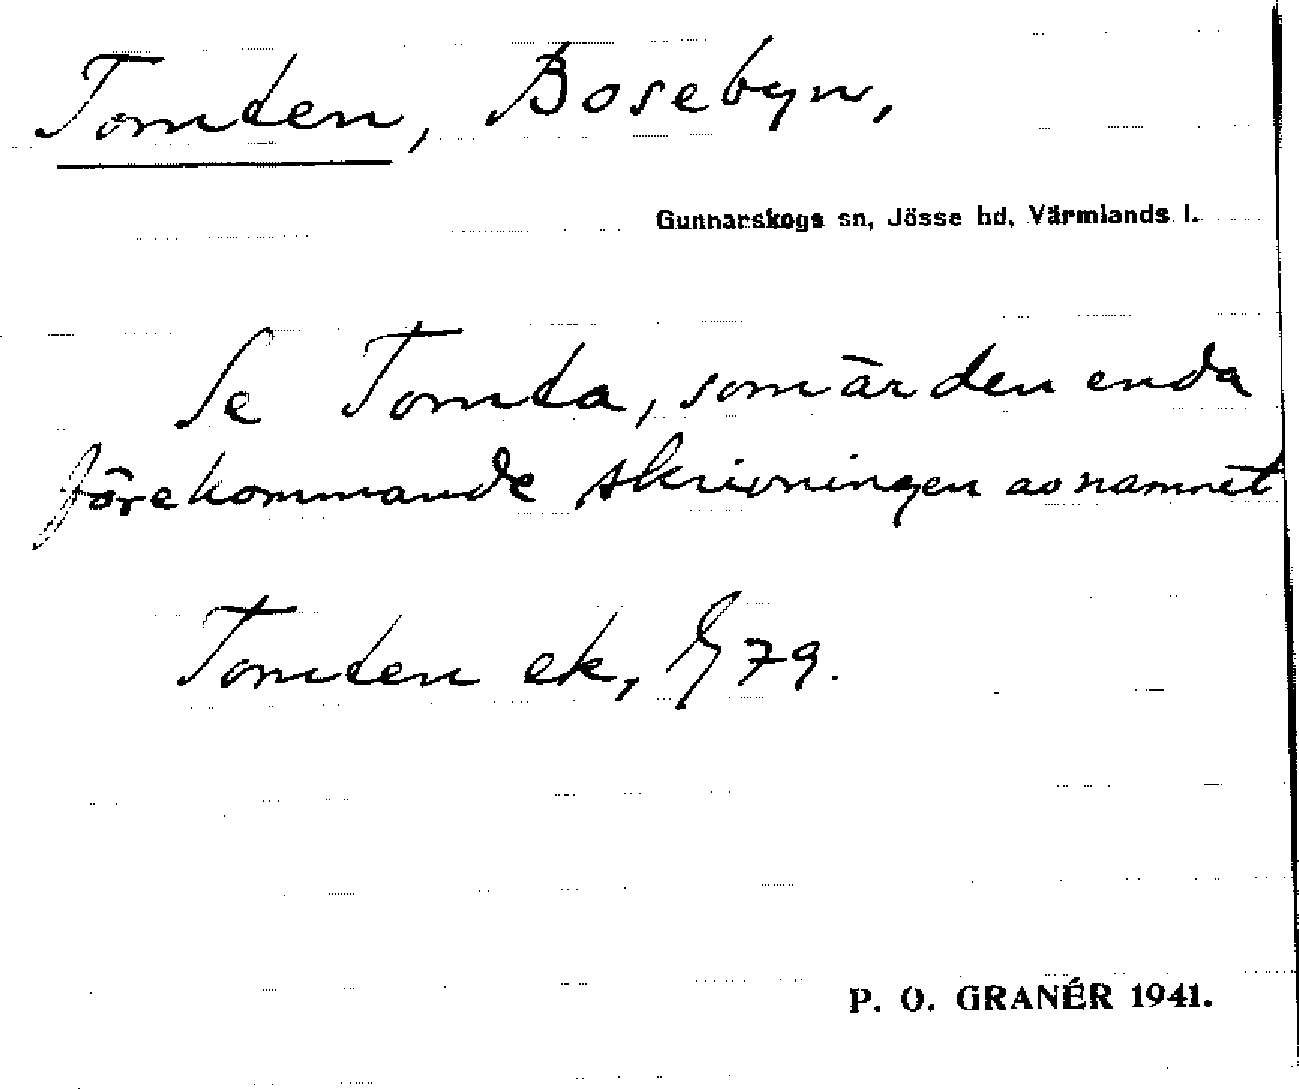 Tomten, Bosebyn,
Gunnarskogs sn, Jösse hd, Värmlands l.
Se Tomta, som är den enda
förekommande skrivningen av namnet
Tomten ek, G 79.
P. O. GRANÉR 1941.